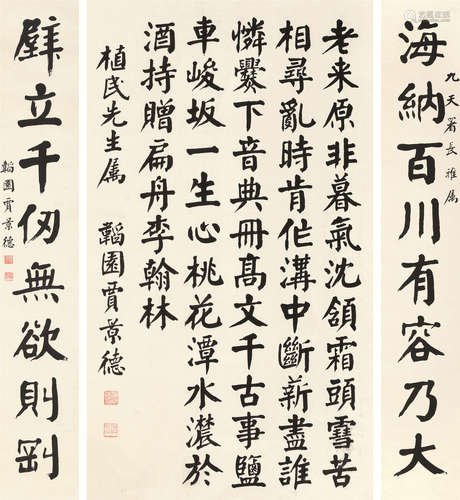 海納百川有容乃大
九天署長雅属
老来原非暮氣沈頷霜頭雪苦
相尋亂時肯作溝中斷薪盡誰
憐爨下音典冊髙文千古事鹽
車峻坂一生心桃花潭水濃於
酒持贈扁舟李翰林
植民先生属 韜園賈景德
壁立千仞無欲則剛
韜園賈景德